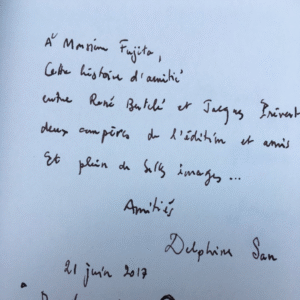 À Monsieur Fujita,
Cette histoire d'amitié
entre René Bertelé et Jacques Prévert
deux compères de l'édition et amis
Et plein de belles images...
Amitiés
Delphine San
21 juin 2017